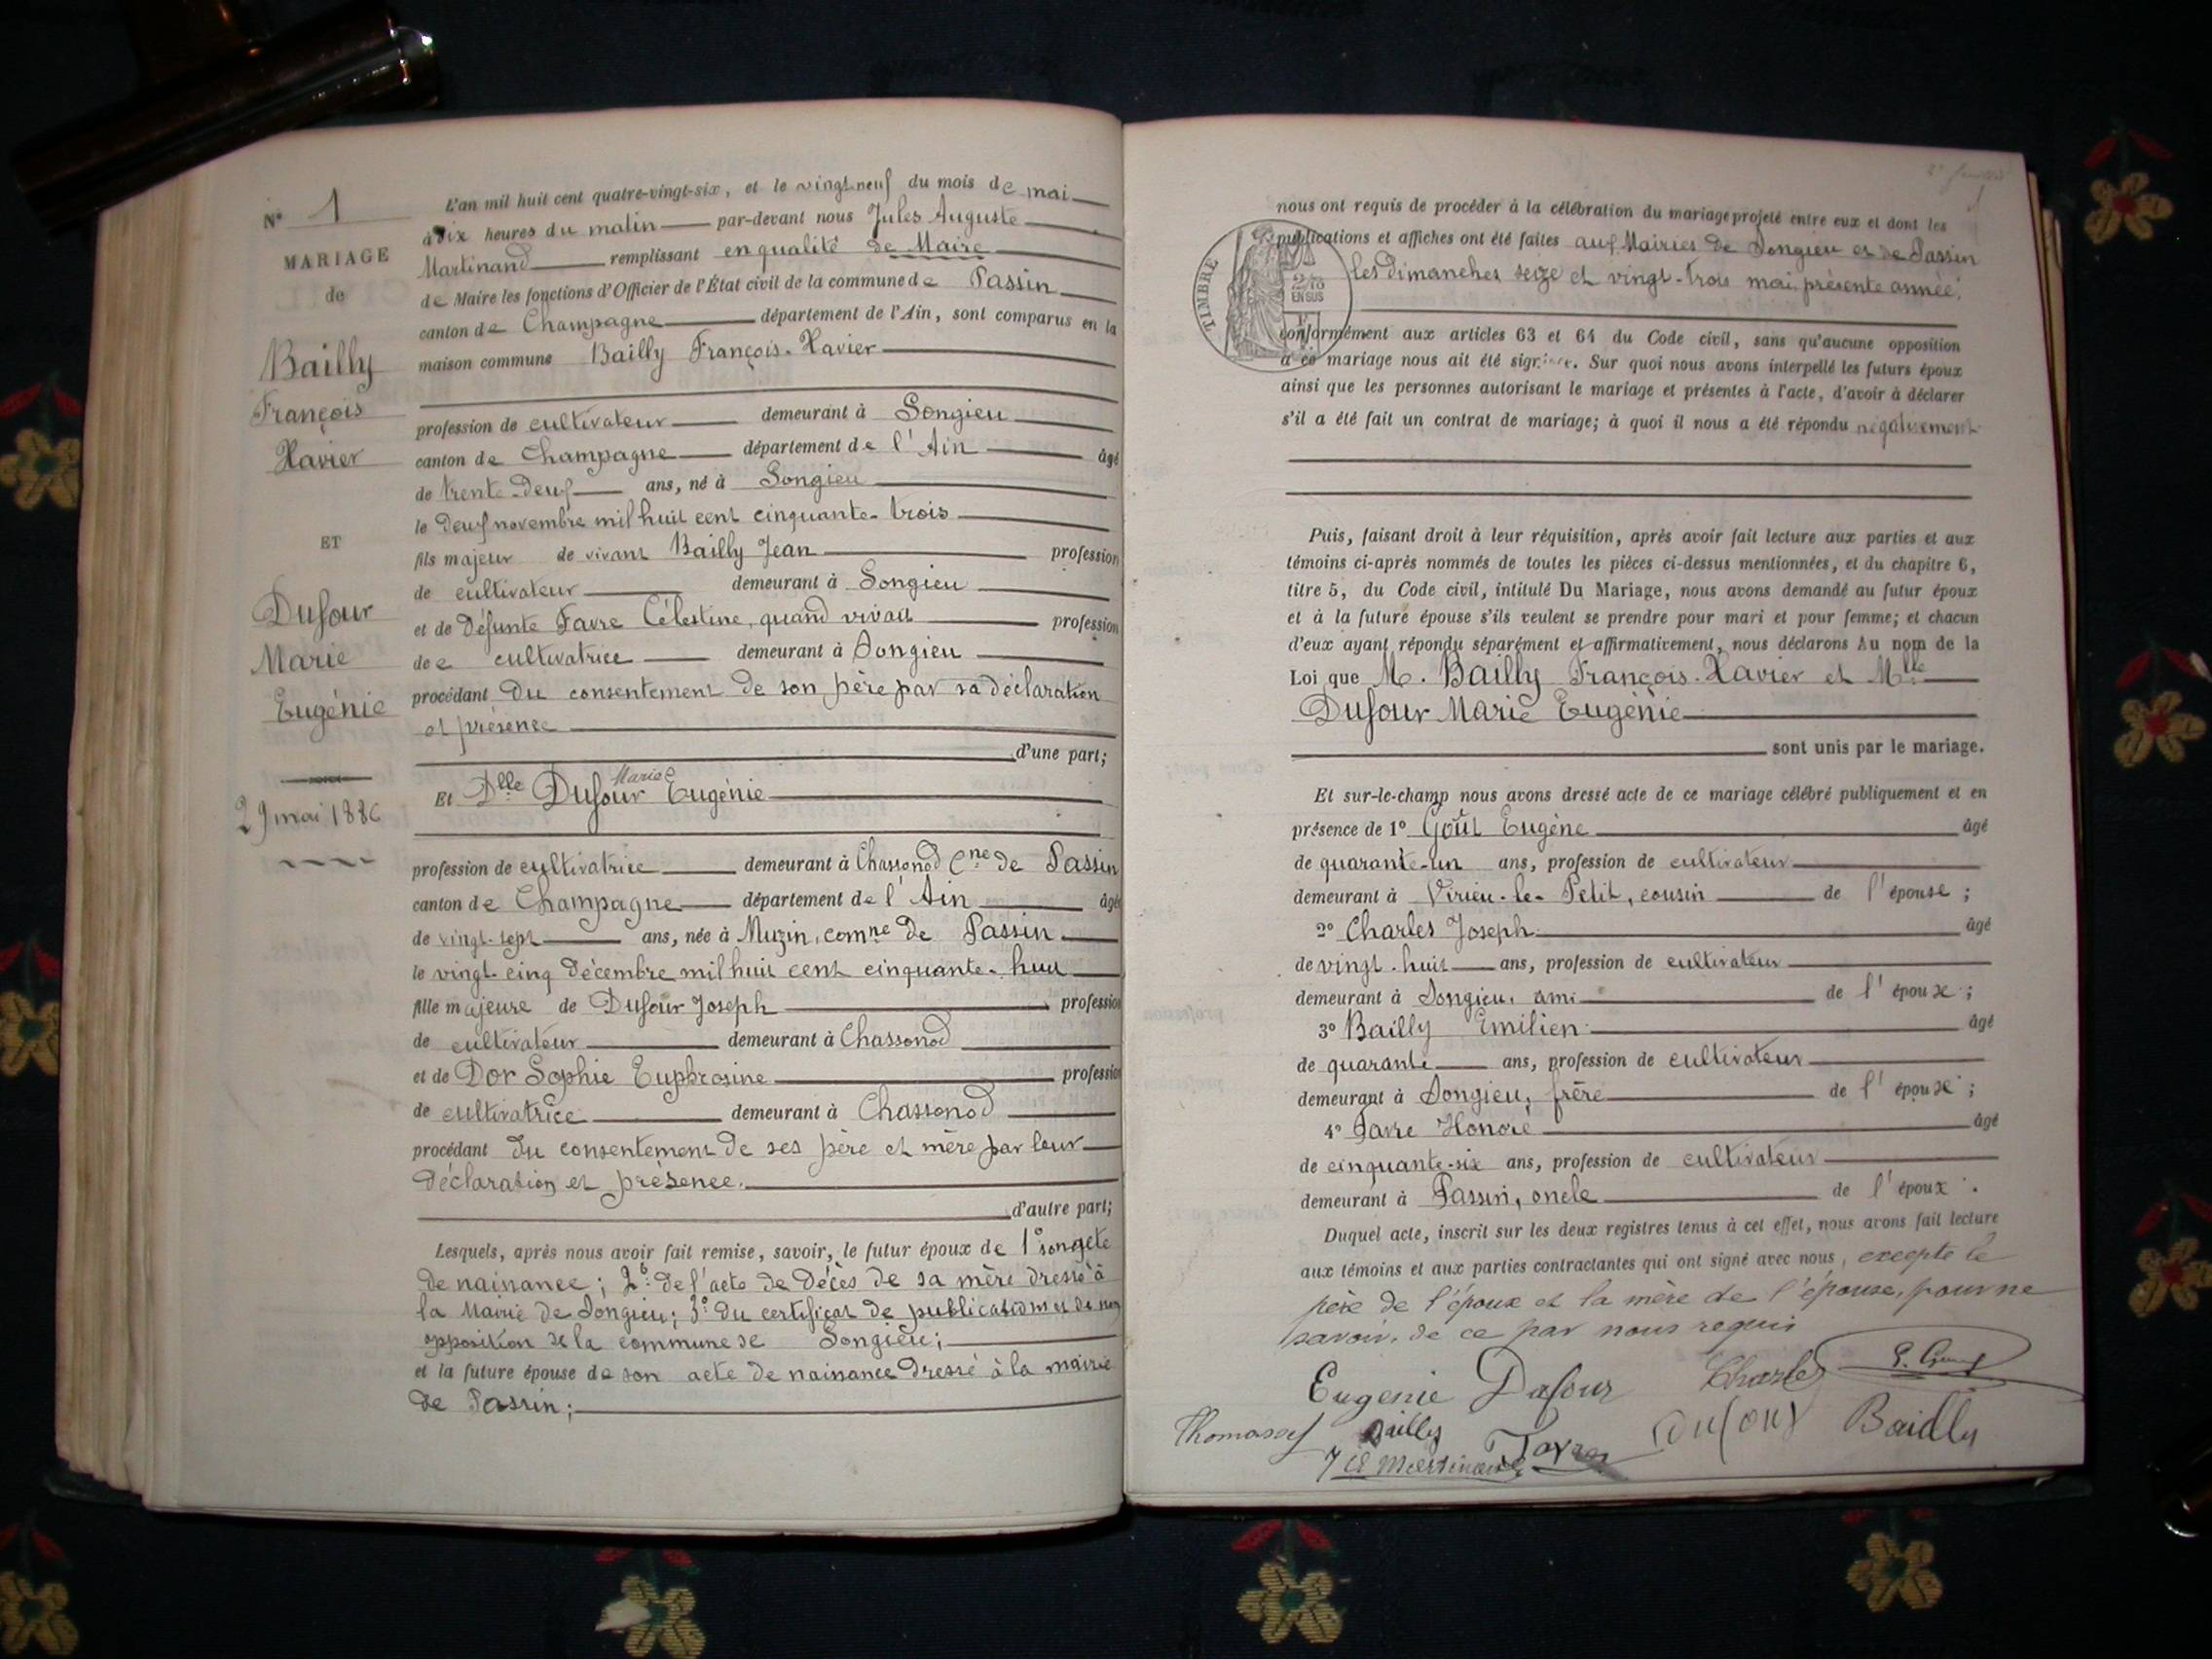 N° 1
MARIAGE
de
Bailly
François
Xavier
ET
Dufour
Marie
Eugénie
29 mai 1886
L'an mil huit cent quatre-vingt-six, et le vingt-neuf du mois de mai
à dix heures du matin par-devant nous Jules Auguste
Martinand remplissant en qualité de Maire
de Maire les fonctions d'Officier de l'État civil de la commune de Passin
canton de Champagne département de l'Ain, sont comparus en la
maison commune Bailly François-Xavier
profession de cultivateur demeurant à Songieu
canton de Champagne département de l'Ain âgé
de trente-deux ans, né à Songieu
le deux novembre mil huit cent cinquante-trois
fils majeur de vivant Bailly Jean profession
de cultivateur demeurant à Songieu
et de défunte Favre Célestine, quand vivait profession
de cultivatrice demeurant à Songieu
procédant du consentement de son père par sa déclaration
et présence
d'une part;
Et Dlle Dufour Marie Eugénie
profession de cultivatrice demeurant à Chassonod Cne de Passin
canton de Champagne département de l'Ain âgée
de vingt-sept ans, née à Muzin, comne de Passin
le vingt-cinq décembre mil huit cent cinquante-huit
fille majeure de Dufour Joseph profession
de cultivateur demeurant à Chassonod
et de Dor Sophie Euphrosine profession
de cultivatrice demeurant à Chassonod
procédant du consentement de ses père et mère par leur
déclaration et présence.
d'autre part;
Lesquels, après nous avoir fait remise, savoir, le futur époux de 1° son acte
de naissance; 2° de l'acte de décès de sa mère dressé à
la Mairie de Songieu; 3° du certificat de publications et de non
opposition de la commune de Songieu;
et la future épouse de son acte de naissance dressé à la mairie
de Passin;
nous ont requis de procéder à la célébration du mariage projeté entre eux et dont les
publications et affiches ont été faites aux Mairies de Songieu et de Passin
les dimanches seize et vingt-trois mai, présente année,
TIMBRE
2/10
EN SUS
conformément aux articles 63 et 64 du Code civil, sans qu'aucune opposition
à ce mariage nous ait été signifiée. Sur quoi nous avons interpellé les futurs époux
ainsi que les personnes autorisant le mariage et présentes à l'acte, d'avoir à déclarer
s'il a été fait un contrat de mariage; à quoi il nous a été répondu négativement
Puis, faisant droit à leur réquisition, après avoir fait lecture aux parties et aux
témoins ci-après nommés de toutes les pièces ci-dessus mentionnées, et du chapitre 6,
titre 5, du Code civil, intitulé Du Mariage, nous avons demandé au futur époux
et à la future épouse s'ils veulent se prendre pour mari et pour femme; et chacun
d'eux ayant répondu séparément et affirmativement, nous déclarons Au nom de la
Loi que M. Bailly François-Xavier et Mlle
Dufour Marie Eugénie
sont unis par le mariage.
Et sur-le-champ nous avons dressé acte de ce mariage célébré publiquement et en
présence de 1° Goût Eugène âgé
de quarante-un ans, profession de cultivateur
demeurant à Virieu-le-Petit, cousin de l'épouse;
2° Charles Joseph âgé
de vingt-huit ans, profession de cultivateur
demeurant à Songieu, ami de l'époux;
3° Bailly Emilien âgé
de quarante ans, profession de cultivateur
demeurant à Songieu, frère de l'époux;
4° Favre Honoré âgé
de cinquante-six ans, profession de cultivateur
demeurant à Passin, oncle de l'époux.
Duquel acte, inscrit sur les deux registres tenus à cet effet, nous avons fait lecture
aux témoins et aux parties contractantes qui ont signé avec nous, excepté le
père de l'époux et la mère de l'épouse, pour ne
savoir, de ce par nous requis
Eugenie Dufour Charles
Thomasset Bailly Favre Dufour Bailly
Martinand